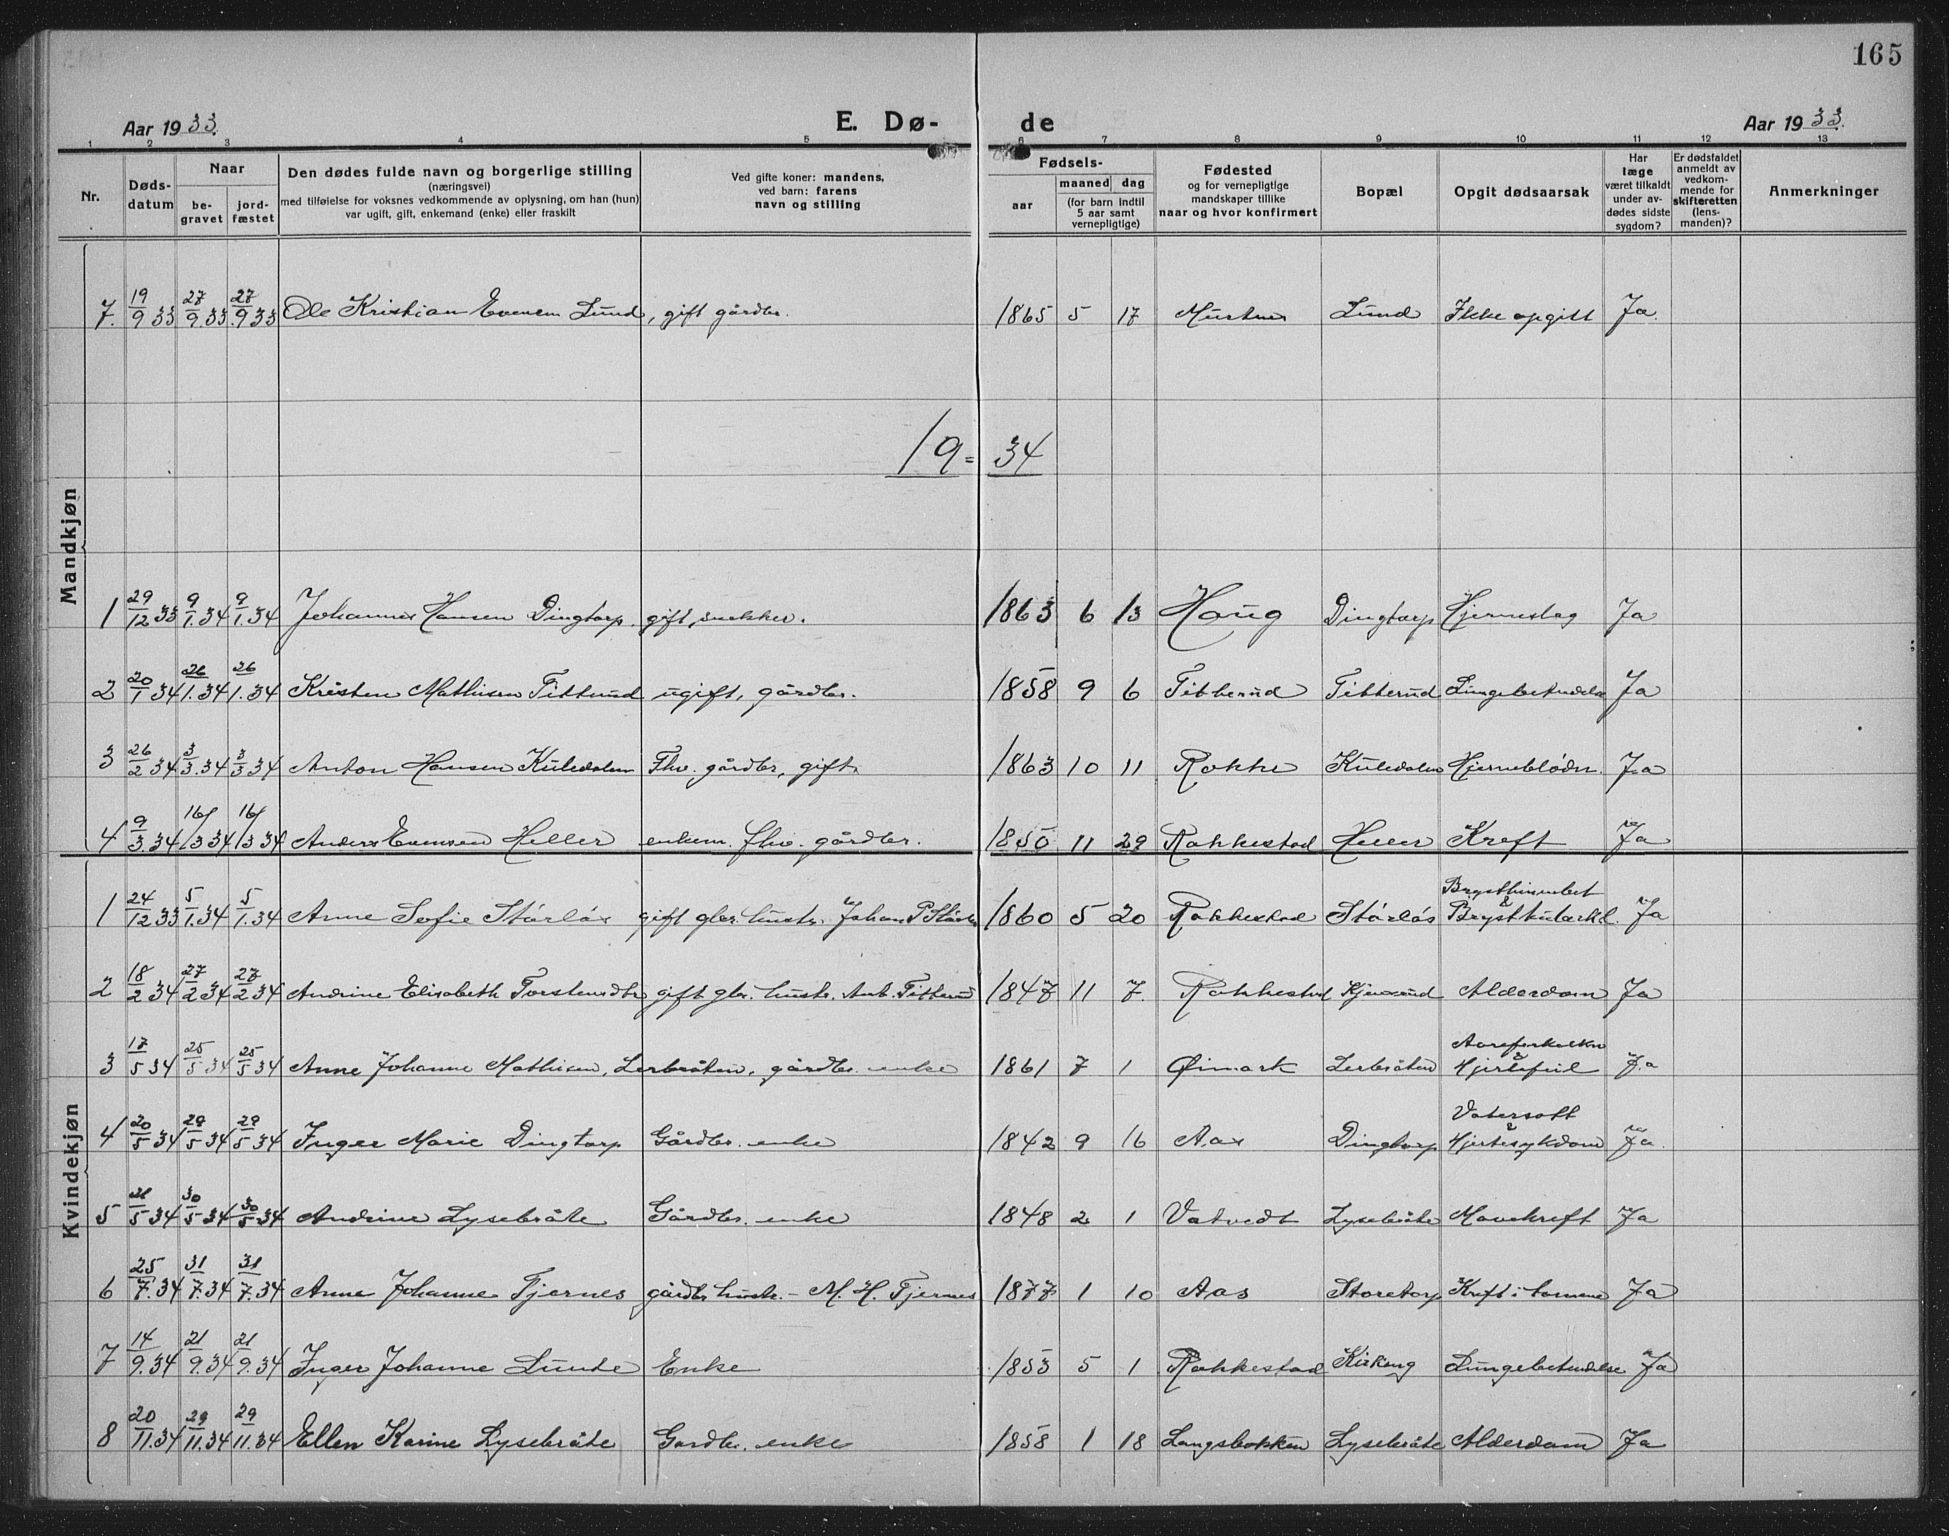 165
Aar 1933.
E. Dø-
de
Aar 1933.
1 2 3 4 5 6 7 8 9 10 11 12 13
Nr.
Døds-
datum
Naar
be-
gravet
jord-
fæstet
Den dødes fulde navn og borgerlige stilling
(næringsvei)
med tilføielse for voksnes vedkommende av oplysning, om han (hun)
var ugift, gift, enkemand (enke) eller fraskilt
Ved gifte koner: mandens,
ved barn: farens
navn og stilling
Fødsels-
aar
maaned dag
(for barn indtil
5 aar samt
vernepligtige)
Fødested
og for vernepligtige
mandskaper tillike
naar og hvor konfirmert
Bopæl
Opgit dødsaarsak
Har
læge
været tilkaldt
under av-
dødes sidste
sygdom?
Er dødsfaldet
anmeldt av
vedkom-
mende for
skifteretten
(lens-
manden)?
Anmerkninger
Mandkjøn
7. 19/9 33 27/9.33 27/9 33 Ole Kristian Evensen Lund, gift gårdbr. 1865 5 17 Lund Ikke opgitt Ja.
19= 34
1 29/12 33 9/1.34 9/1.34 Johannes Hansen Dingtorp. gift, snekker. 1863 6 13 Haug Dingtorp Hjerneslag Ja
2 20/1 34 26/1.34 26/1.34 Kristen Mathisen Titterud ugift, gårdbr. 1858 9 6 Titterud Titterud Lungebetendelse Ja
3 26/2 34 3/3.34 3/3 34 Anton Hansen Kuledalen Fhv. gårdbr, gift. 1863 10 11 Rokke Kuledalen Hjerneblødn. Ja
4 9/3.34 16/3 34 16/3 34 Anders Evensen Heller enkem. fhv. gårdbr. 1850 11 29 Rakkestad Heller Kreft Ja
Kvindekjøn
1 24/12 33 5/1.34 5/1.34 Anne Sofie Stårlås gift gbr. hustr. Johan P. 1860 5 20 Rakkestad Stårlås Brysthinnebet & Ja
2 18/2 34 27/2 34 27/2 34 Andrine Elisabeth Torstensdtr gift gbr. hustr. Ant. Titterud 1847 11 7. Rakkestad Alderdom Ja
3 17/5 34 25/5 34 25/5 34 Anne Johanne Mathisen, Lerbråten, gårdbr. enke 1861 7 1 Øimark Lerbråten Aareforkalkn & Hjertefeil Ja
4 20/5 34 29/5 34 29/5 34 Inger Marie Dingtorp Gårdbr. enke 1842 9 16 Aas Dingtorp Vatersott & Hjertesykdom Ja.
5 21/5 34 30/5 34 30/5 34 Andrine Lysebråte Gårdbr. enke 1848 2 1 Vatvedt Lysebråte Mavekreft Ja
6 25/7.34 31/7.34 31/7.34 Anne Johanne Tjernes gårdbr hustr. - M. H. Tjernes 1877 1 10 Aas Storetorp Kreft i tarmene Ja
7 14/9.34 21/9.34 21/9.34 Inger Johanne Lunde Enke 1853 5 1 Rakkestad Kirkeng Lungebetendelse Ja
8 20/11.34 29/11.34 29/11.34 Ellen Karine Lysebråte Gardbr. enke 1858 1 18 Langsbakken Lysebråte Alderdom Ja